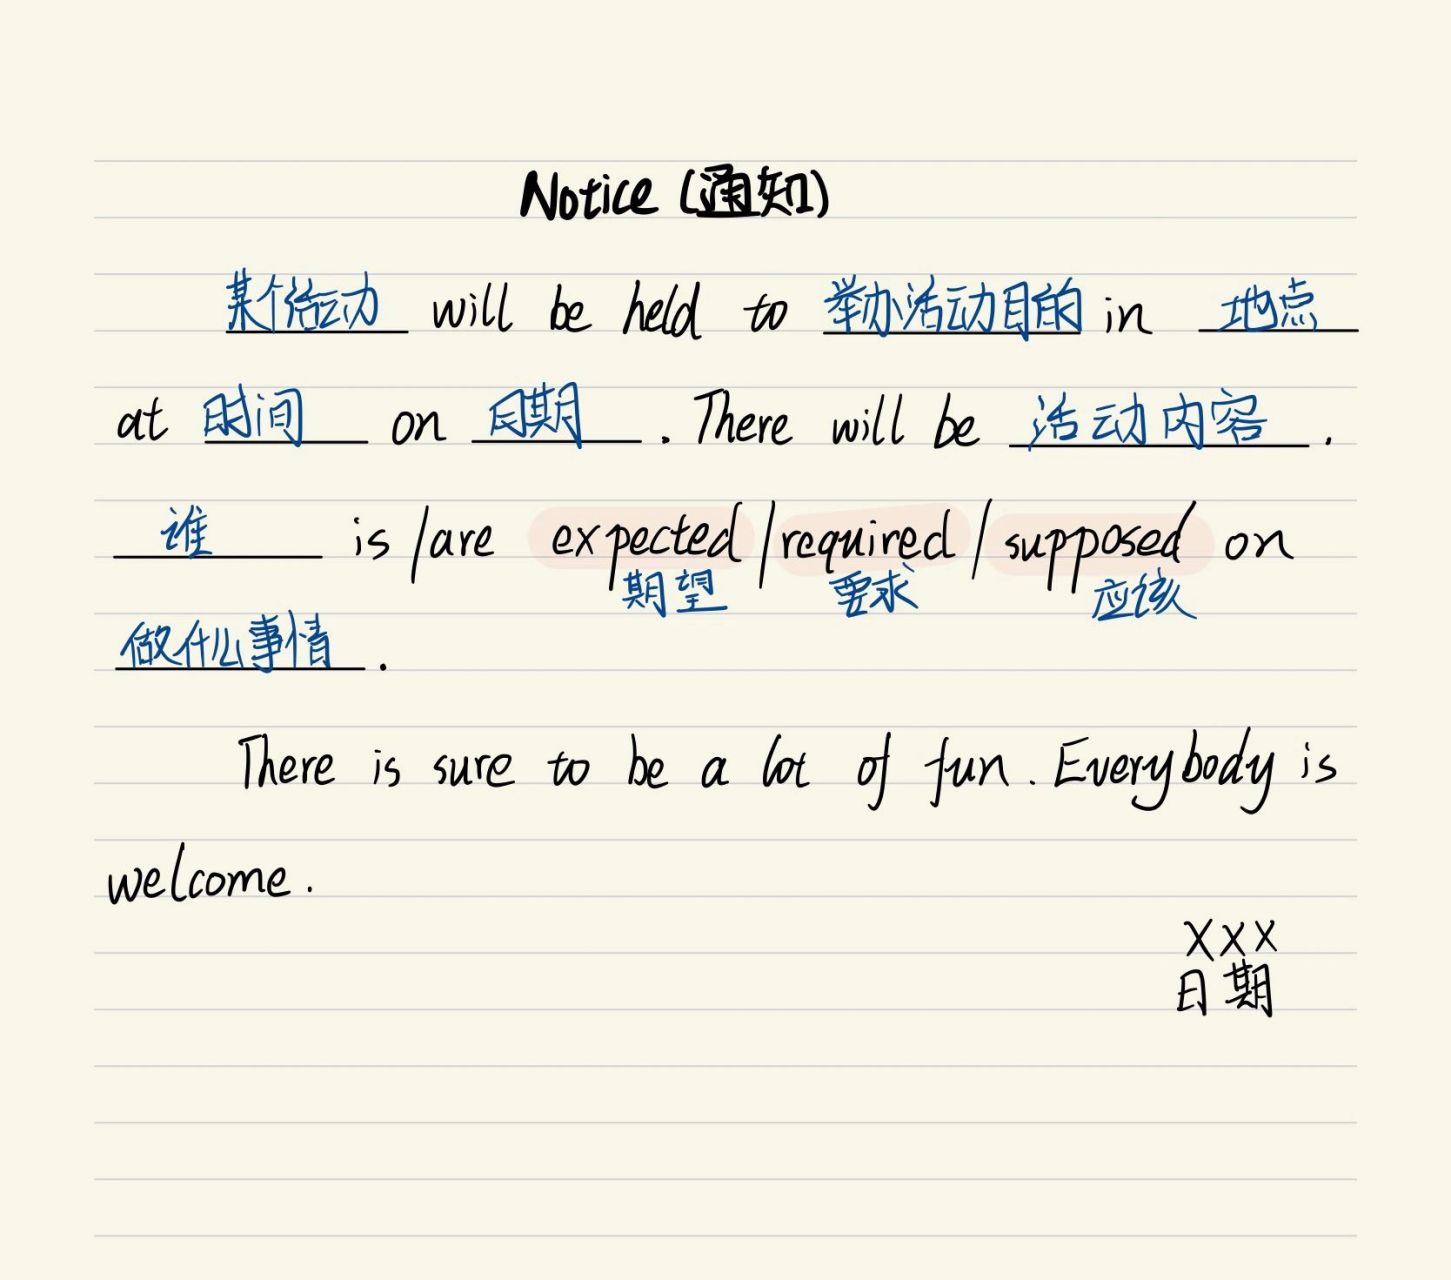 Notice (通知)
某个活动 will be held to 举办活动目的 in 地点
at 时间 on 日期. There will be 活动内容.
谁 is/are expected/required/supposed on
期望 要求 应该
做什么事情.
There is sure to be a lot of fun. Everybody is
welcome.
XXX
日期